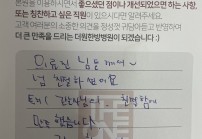 본원을 이용하시면서 좋으셨던 점이나 개선되었으면 하는 사항,
또는 칭찬하고 싶은 직원이 있으시다면 알려주세요.
고객 여러분의 소중한 의견을 정성껏 귀담아듣고 반영하여
더 큰 만족을 드리는 더원한방병원이 되겠습니다 :)
의료진 님들께서~
넘 친절하셨어요
특히
친절함에